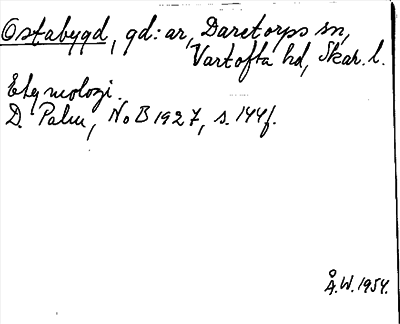 Ostabygd, gd:ar, Daretorps sn,
Vartofta hd, Skar. l.
Etymologi.
D. Palm, NoB 1927, s. 144f.
Å.W. 1954.